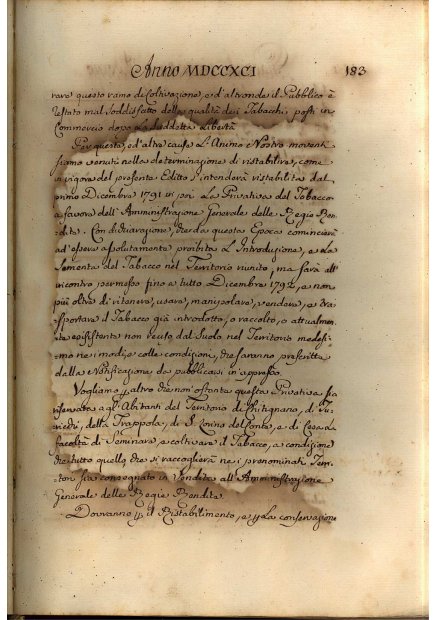 Anno MDCCXCI 183
rare questo ramo di Coltivazione, e d'altronde il Pubblico è
restato mal soddisfatto della qualità dei Tabacchi posti in
Commercio dopo la suddetta Libertà
Per queste, ed altre cause L'Animo Nostro moventi
siamo venuti nella determinazione di ristabilire, come
in vigore del presente Editto s'intenderà ristabilita dal
primo Dicembre 1791 in poi La Privativa del Tabacco
a favore dell'Amministrazione Generale delle Regie Ren-
dite. Con dichiarazione, che da questa Epoca comincierà
ad essere assolutamente proibita L'Introduzione, e La
Sementa del Tabacco nel Territorio riunito, ma sarà all'
incontro permesso fino a tutto Dicembre 1792, e non
più oltre di ritenere, usare, manipolare, vendere, e tra-
sportare il Tabacco già introdotto, o raccolto, o attualmen-
te esistente non reciso dal Suolo nel Territorio medesi-
mo ne i modi, e colle condizioni, che saranno prescritte
dalla Notificazione da pubblicarsi in appresso.
Vogliamo altro che non ostante questa Privativa sia
riservata agl'Abitanti del Territorio di Chitignano, di
della Trappola, di S. del Conte, e di
facoltà di Seminare, e coltivare il Tabacco, a condizione
che tutto quello, che si raccoglierà ne i prenominati Terri-
tori sia consegnato in Vendita all'Amministrazione
Generale delle Regie Rendite.
Dovranno il Ristabilimento, e La conservazione